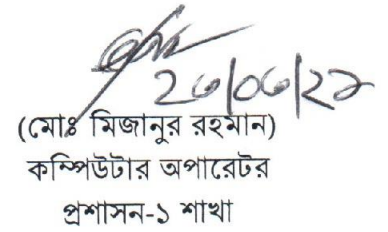 (মোঃ মিজানুর রহমান)
কম্পিউটার অপারেটর
প্রশাসন-১ শাখা